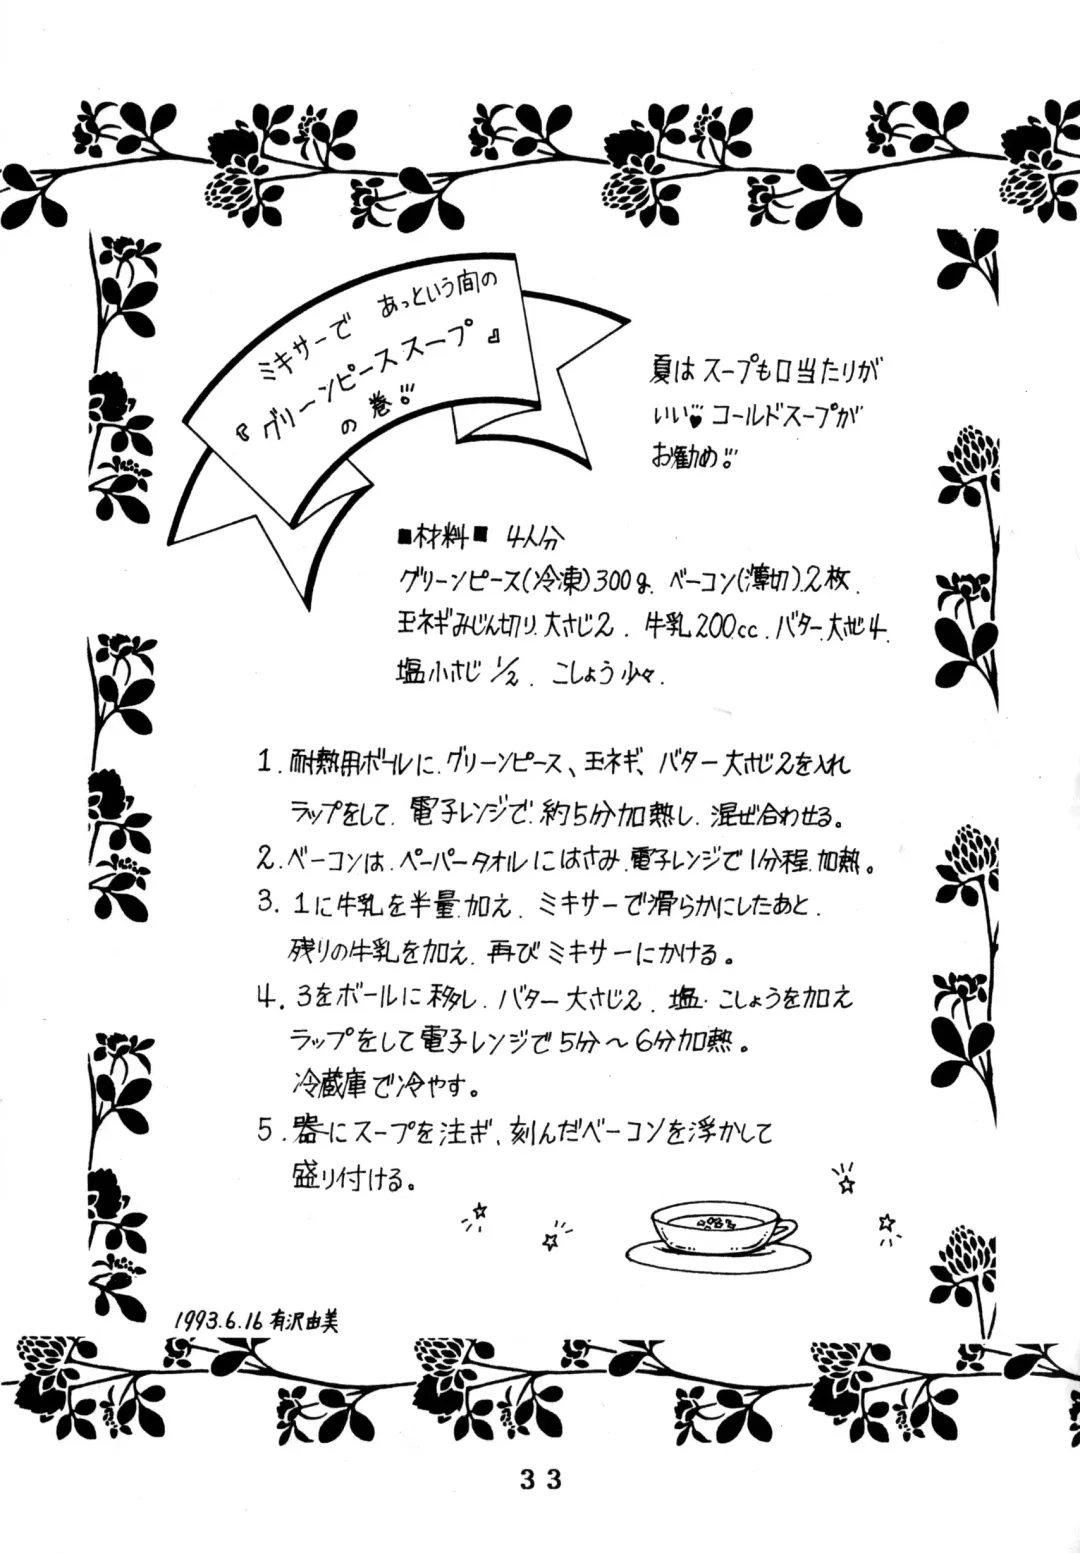 ミキサーで あっという間の
『グリーンピーススープ』
の巻!!
夏はスープも口当たりが
いい♥コールドスープが
お勧め!!
■材料■ 4人分
グリーンピース(冷凍)300g. ベーコン(薄切).2枚.
玉ネギみじん切り.大さじ2. 牛乳200cc. バター.大さじ4.
塩小さじ1/2. こしょう少々.
1.耐熱用ボールに.グリーンピース、玉ネギ、バター大さじ2を入れ
ラップをして.電子レンジで.約5分加熱し.混ぜ合わせる。
2.ベーコンは.ペーパータオルにはさみ.電子レンジで1分程.加熱。
3.1に牛乳を半量.加え.ミキサーで滑らかにしたあと.
残りの牛乳を加え.再びミキサーにかける。
4.3をボールに移し.バター大さじ2.塩・こしょうを加え
ラップをして電子レンジで5分〜6分加熱。
冷蔵庫で冷やす。
5.器にスープを注ぎ、刻んだベーコンを浮かして
盛り付ける。
1993.6.16 有沢由美
33